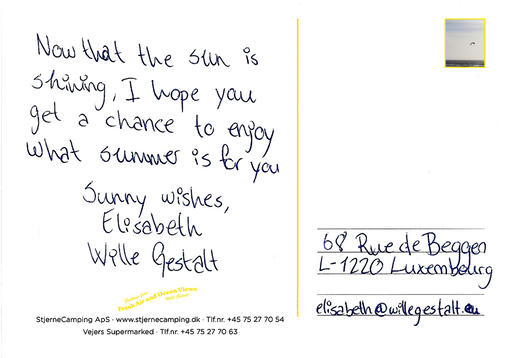 Now that the sun is
shining, I hope you
get a chance to enjoy
what summer is for you
Sunny wishes,
Elisabeth
Wille Gestalt
Fresh Air and Ocean Views
StjerneCamping ApS · www.stjernecamping.dk · Tlf.nr. +45 75 27 70 54
Vejers Supermarked · Tlf.nr. +45 75 27 70 63
68 Rue de Beggen
L-1220 Luxembourg
elisabeth@willegestalt.eu